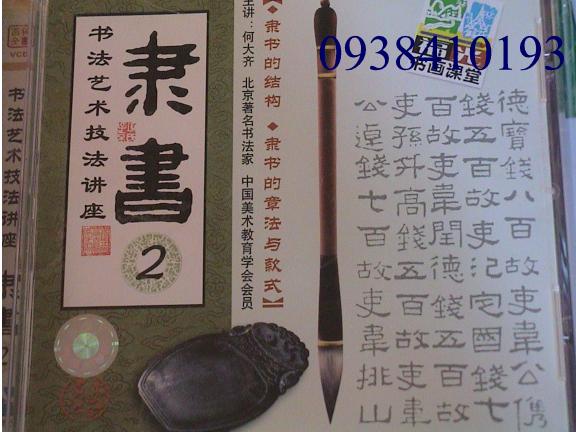 0938410193
书画课堂
隶書
2
书法艺术技法讲座
主讲：何大齐 北京著名书法家 中国美术教育学会会员
【◆隶书的结构 ◆隶书的章法与款式】
德寶錢八百故吏韋公儁
錢五百故吏氾定國錢七
百故吏韋閏德錢五百故
吏孫升高錢五百故吏韋
公逴錢七百故吏韋排山
书法艺术技法讲座
隶書
2